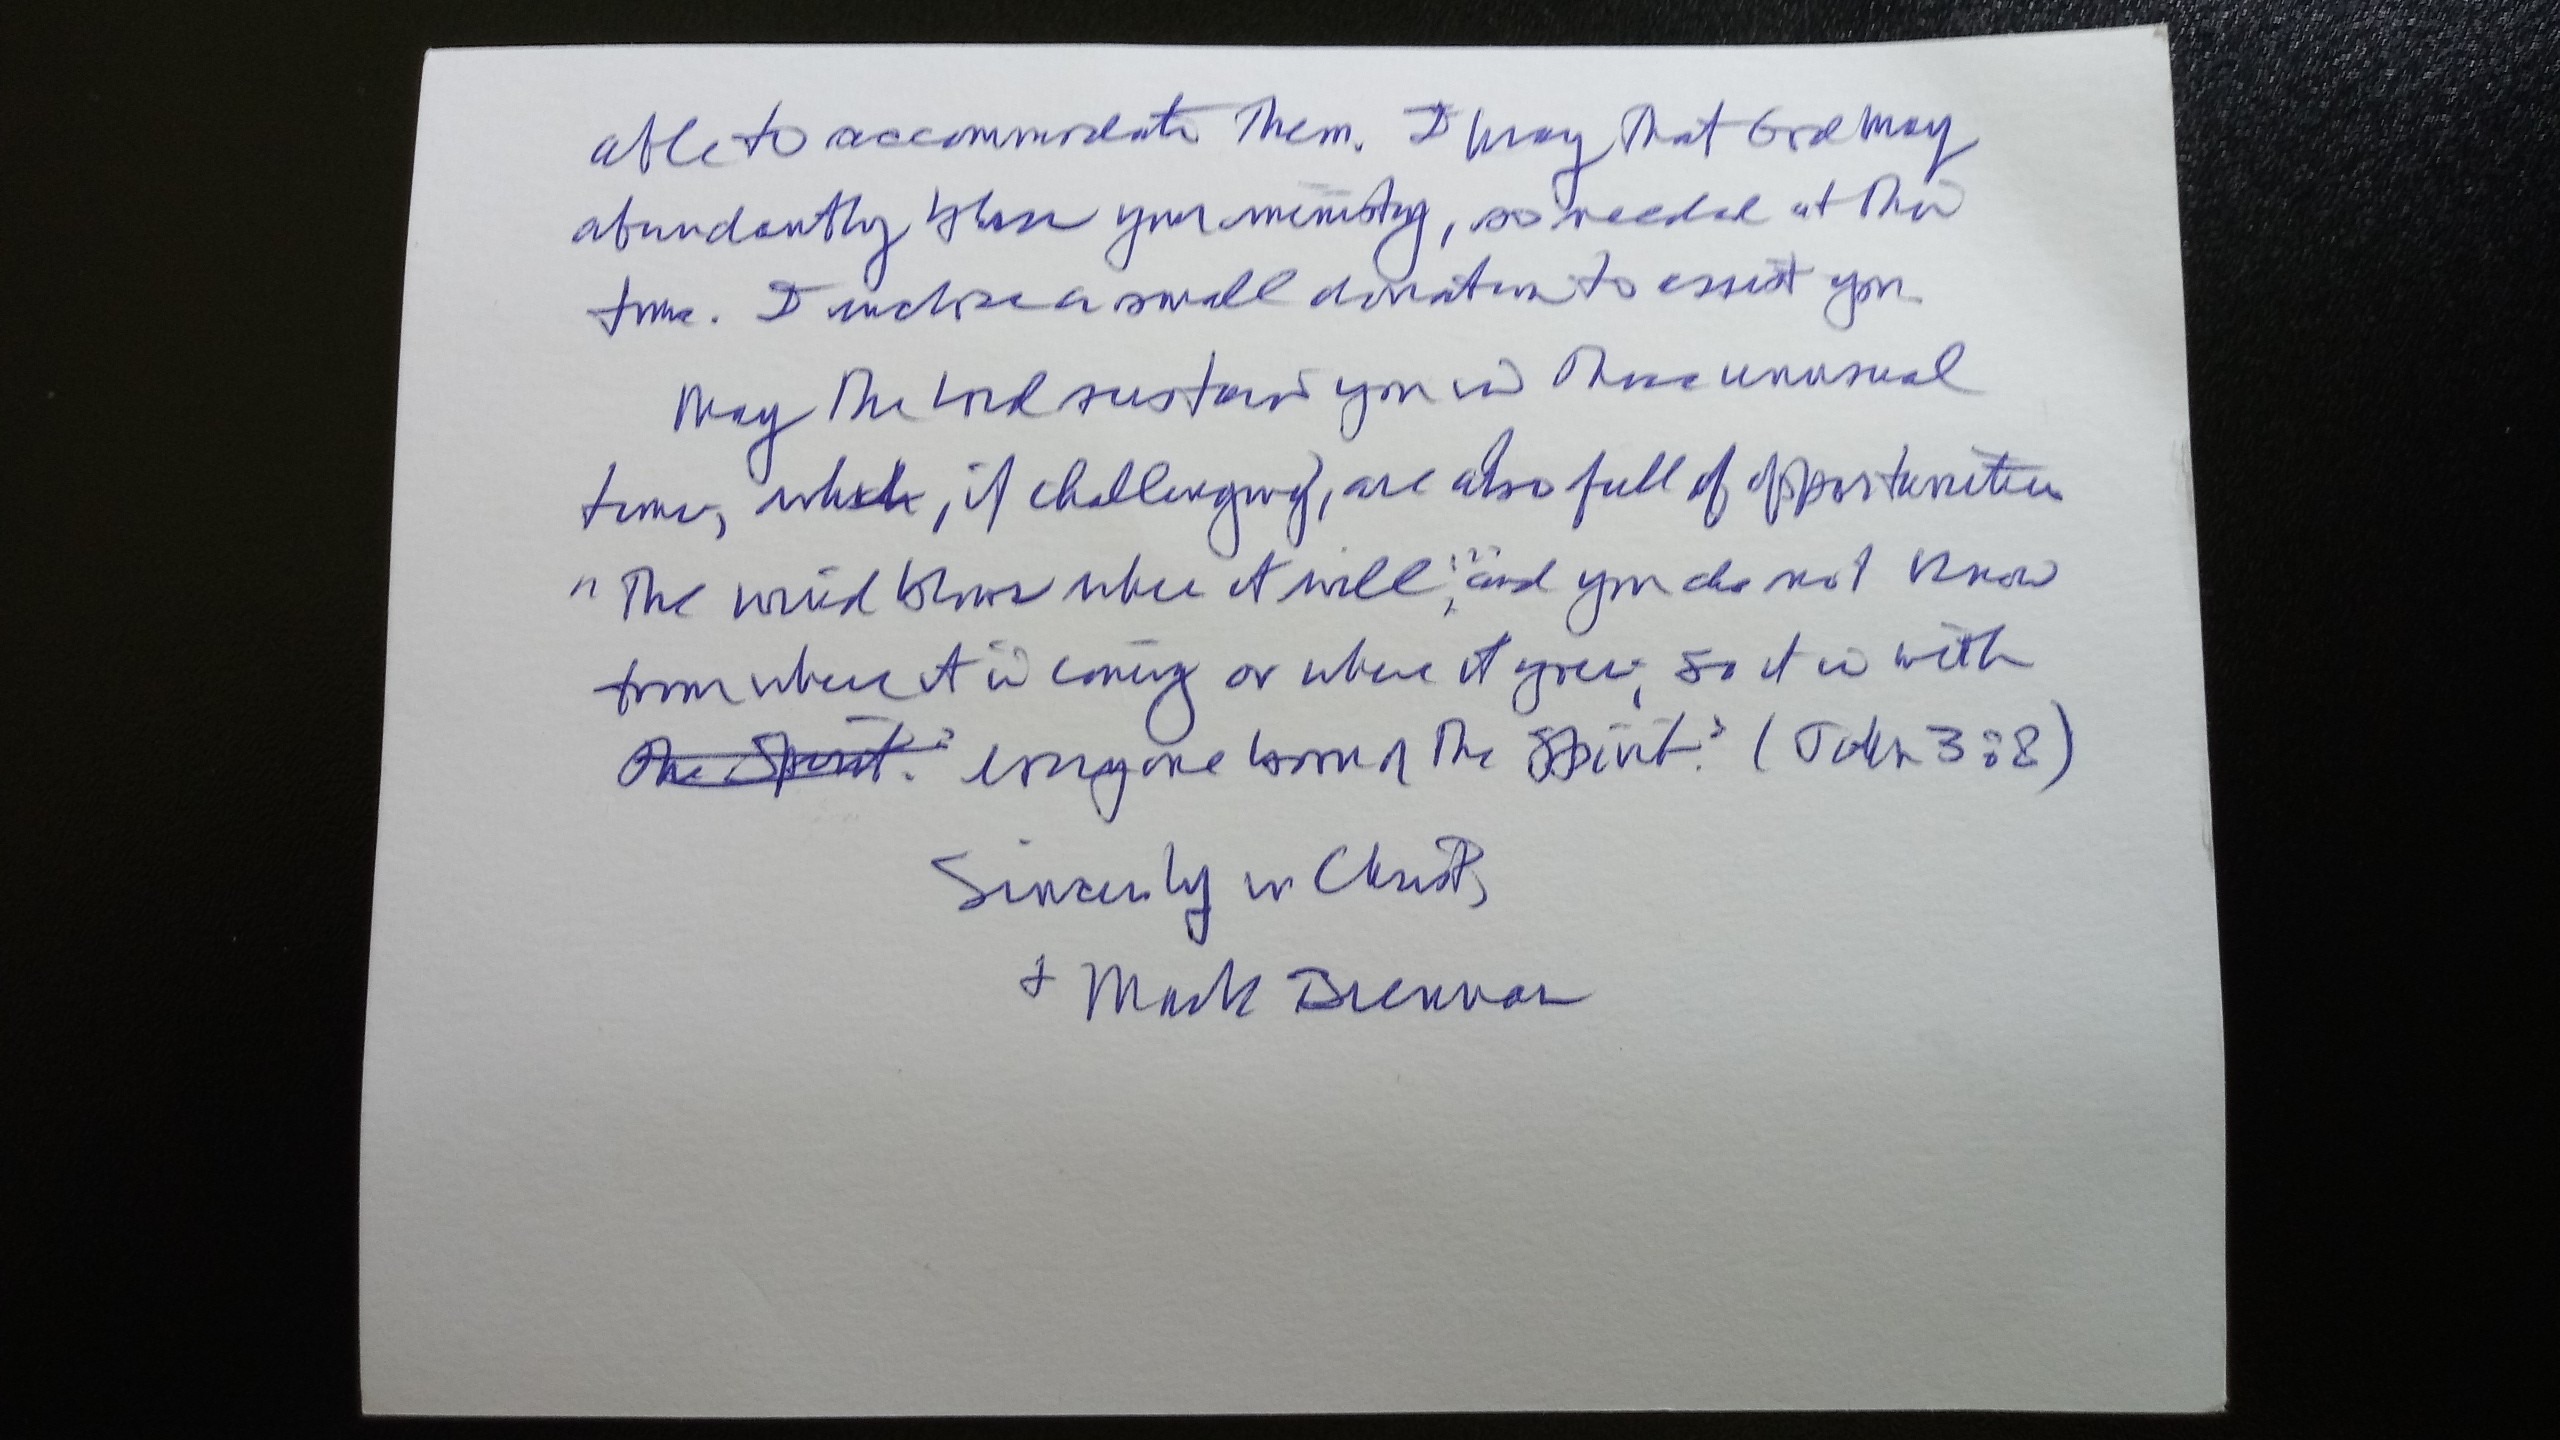 able to accommodate them. I pray that God may
abundantly bless your ministry, so needed at this
time. I enclose a small donation to assist you.
May the Lord sustain you in these unusual
times, which, if challenging, are also full of opportunities.
"The wind blows where it will; and you do not know
from where it is coming or where it goes; so it is with
the Spirit." everyone born of the Spirit." (John 3:8)
Sincerely in Christ,
+ Mark Brennan